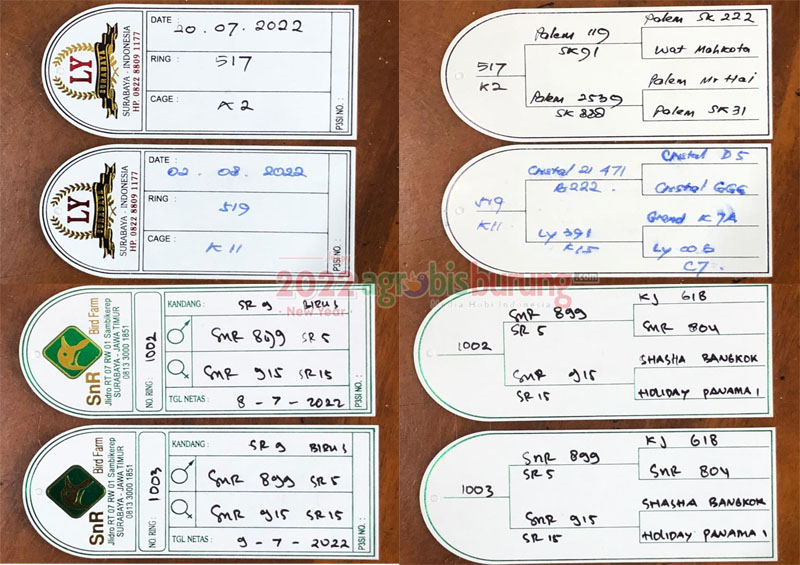 LY
SURABAYA
SURABAYA - INDONESIA
HP. 0822 8809 1177
DATE : 20.07.2022
RING : 517
CAGE : K2
P3SI NO. :
517
K2
Palem 119
SK91
Palem 2539
SK 888
Palem SK 222
Wat Mahkota
Palem Mr Hai
Palem SK 31
LY
SURABAYA
SURABAYA - INDONESIA
HP. 0822 8809 1177
DATE : 02.08.2022
RING : 519
CAGE : K11
P3SI NO. :
519
K11
Cristal 21 471
B222.
Ly 391
K15
Cristal D5
Cristal GGG
Grand K7A
Ly 008
C7.
2022
New Year
agrobisburung.com
Media Hobi Indonesia
SnR Bird Farm
Jlidro RT 07 RW 01 Sambikerep
SURABAYA - JAWA TIMUR
0813 3000 1851
NO. RING : 1002
KANDANG : SR 9 BIRU 5
SNR 899 SR 5
SNR 915 SR 15
TGL NETAS : 8 - 7 - 2022
P3SI NO. :
1002
SNR 899
SR 5
SNR 915
SR 15
KJ 618
SNR 804
SHASHA BANGKOK
HOLIDAY PANAMA 1
SnR Bird Farm
Jlidro RT 07 RW 01 Sambikerep
SURABAYA - JAWA TIMUR
0813 3000 1851
NO. RING : 1003
KANDANG : SR 9 BIRU 5
SNR 899 SR 5
SNR 915 SR 15
TGL NETAS : 9 - 7 - 2022
P3SI NO. :
1003
SNR 899
SR 5
SNR 915
SR 15
KJ 618
SNR 804
SHASHA BANGKOK
HOLIDAY PANAMA 1